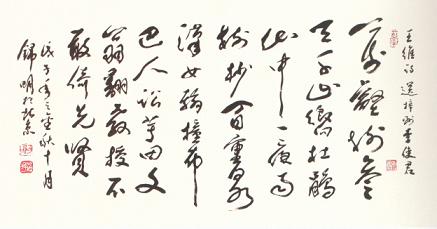 王維詩 送梓州李使君
萬壑樹參
天千山響杜鵑
山中一夜雨
樹杪百重泉
漢女輸橦布
巴人訟芋田文
翁翻教授不
敢倚先賢
戊子年之金秋十月
錦明於北京